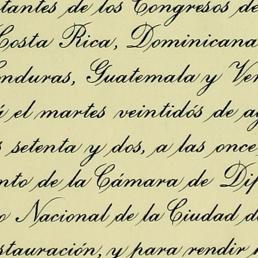 tantes de los Congresos de
Costa Rica, Dominicana
nduras, Guatemala y Ve
el martes veintidós de ag
setenta y dos, a las once
nto de la Cámara de Dip
o Nacional de la Ciudad d
stauración, y para rendir